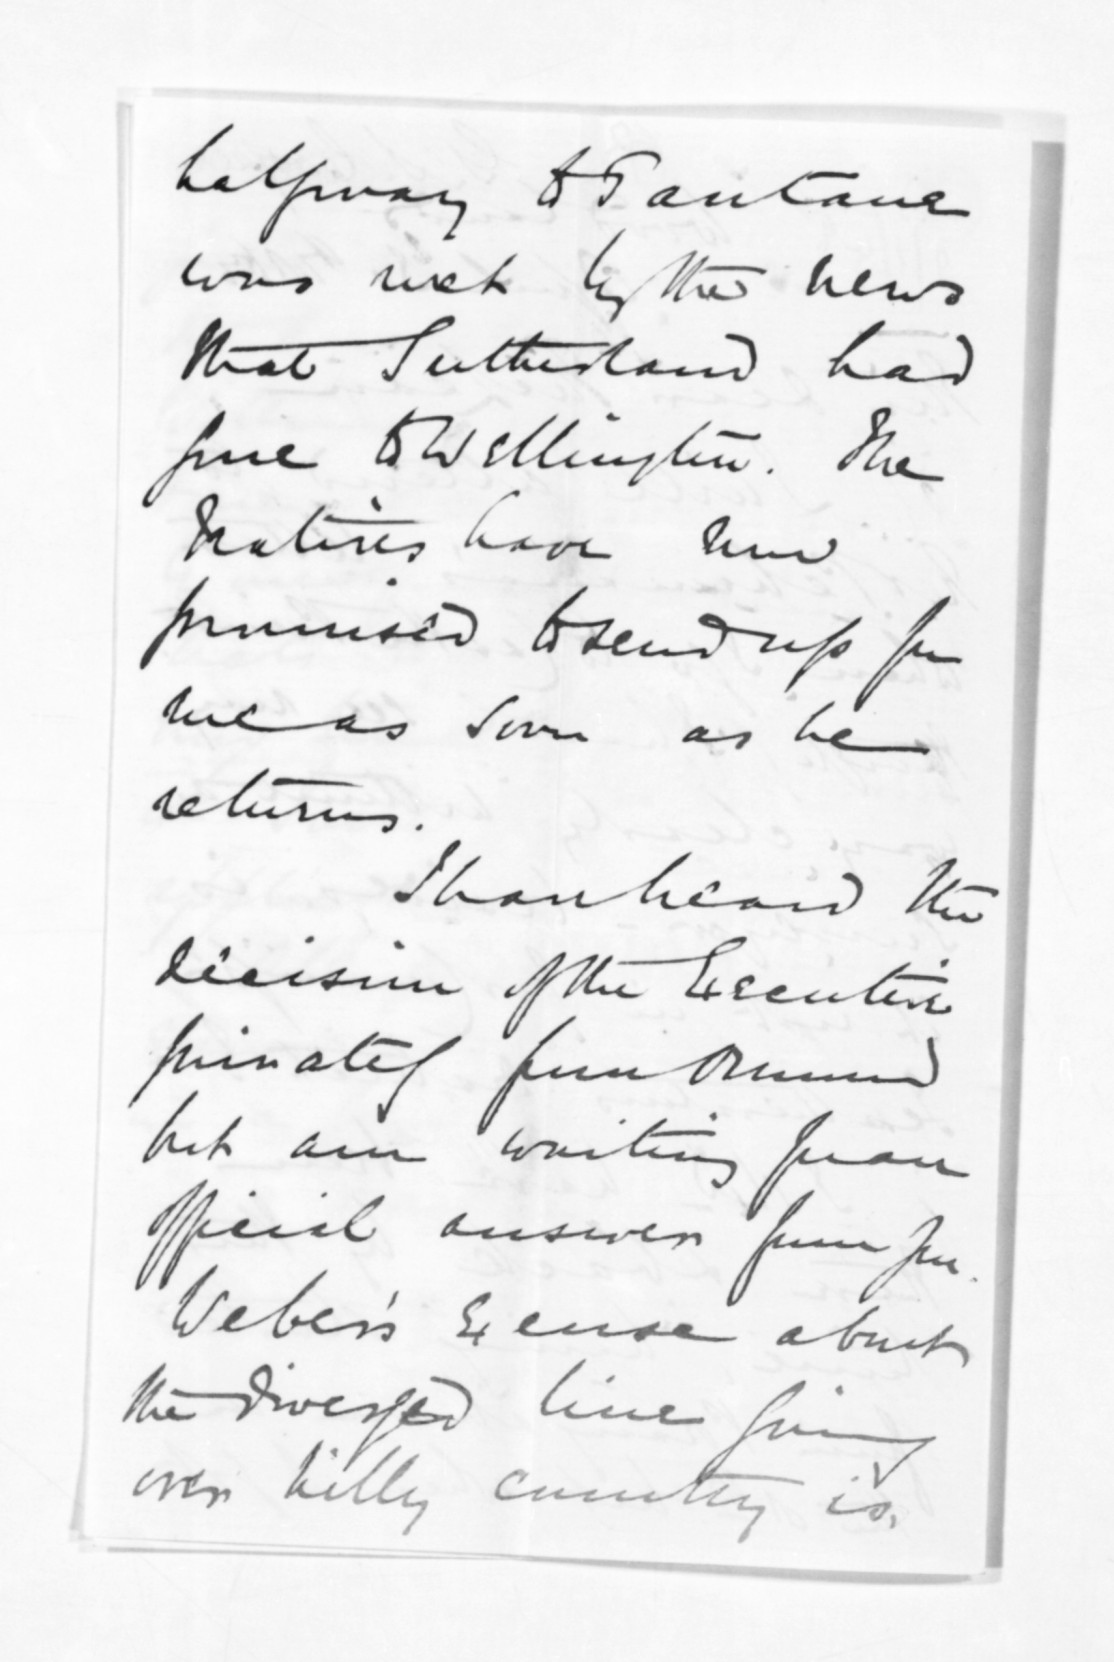 halfway to Tautane
was met by the news
that Sutherland had
gone to Wellington. The
Natives have now
promised to send up for
me as soon as he
returns.
I have heard the
decision of the Executive
privately from Ormond
but am waiting for an
official answer from
Weber's excuse about
the diverged line going
over hilly country is.